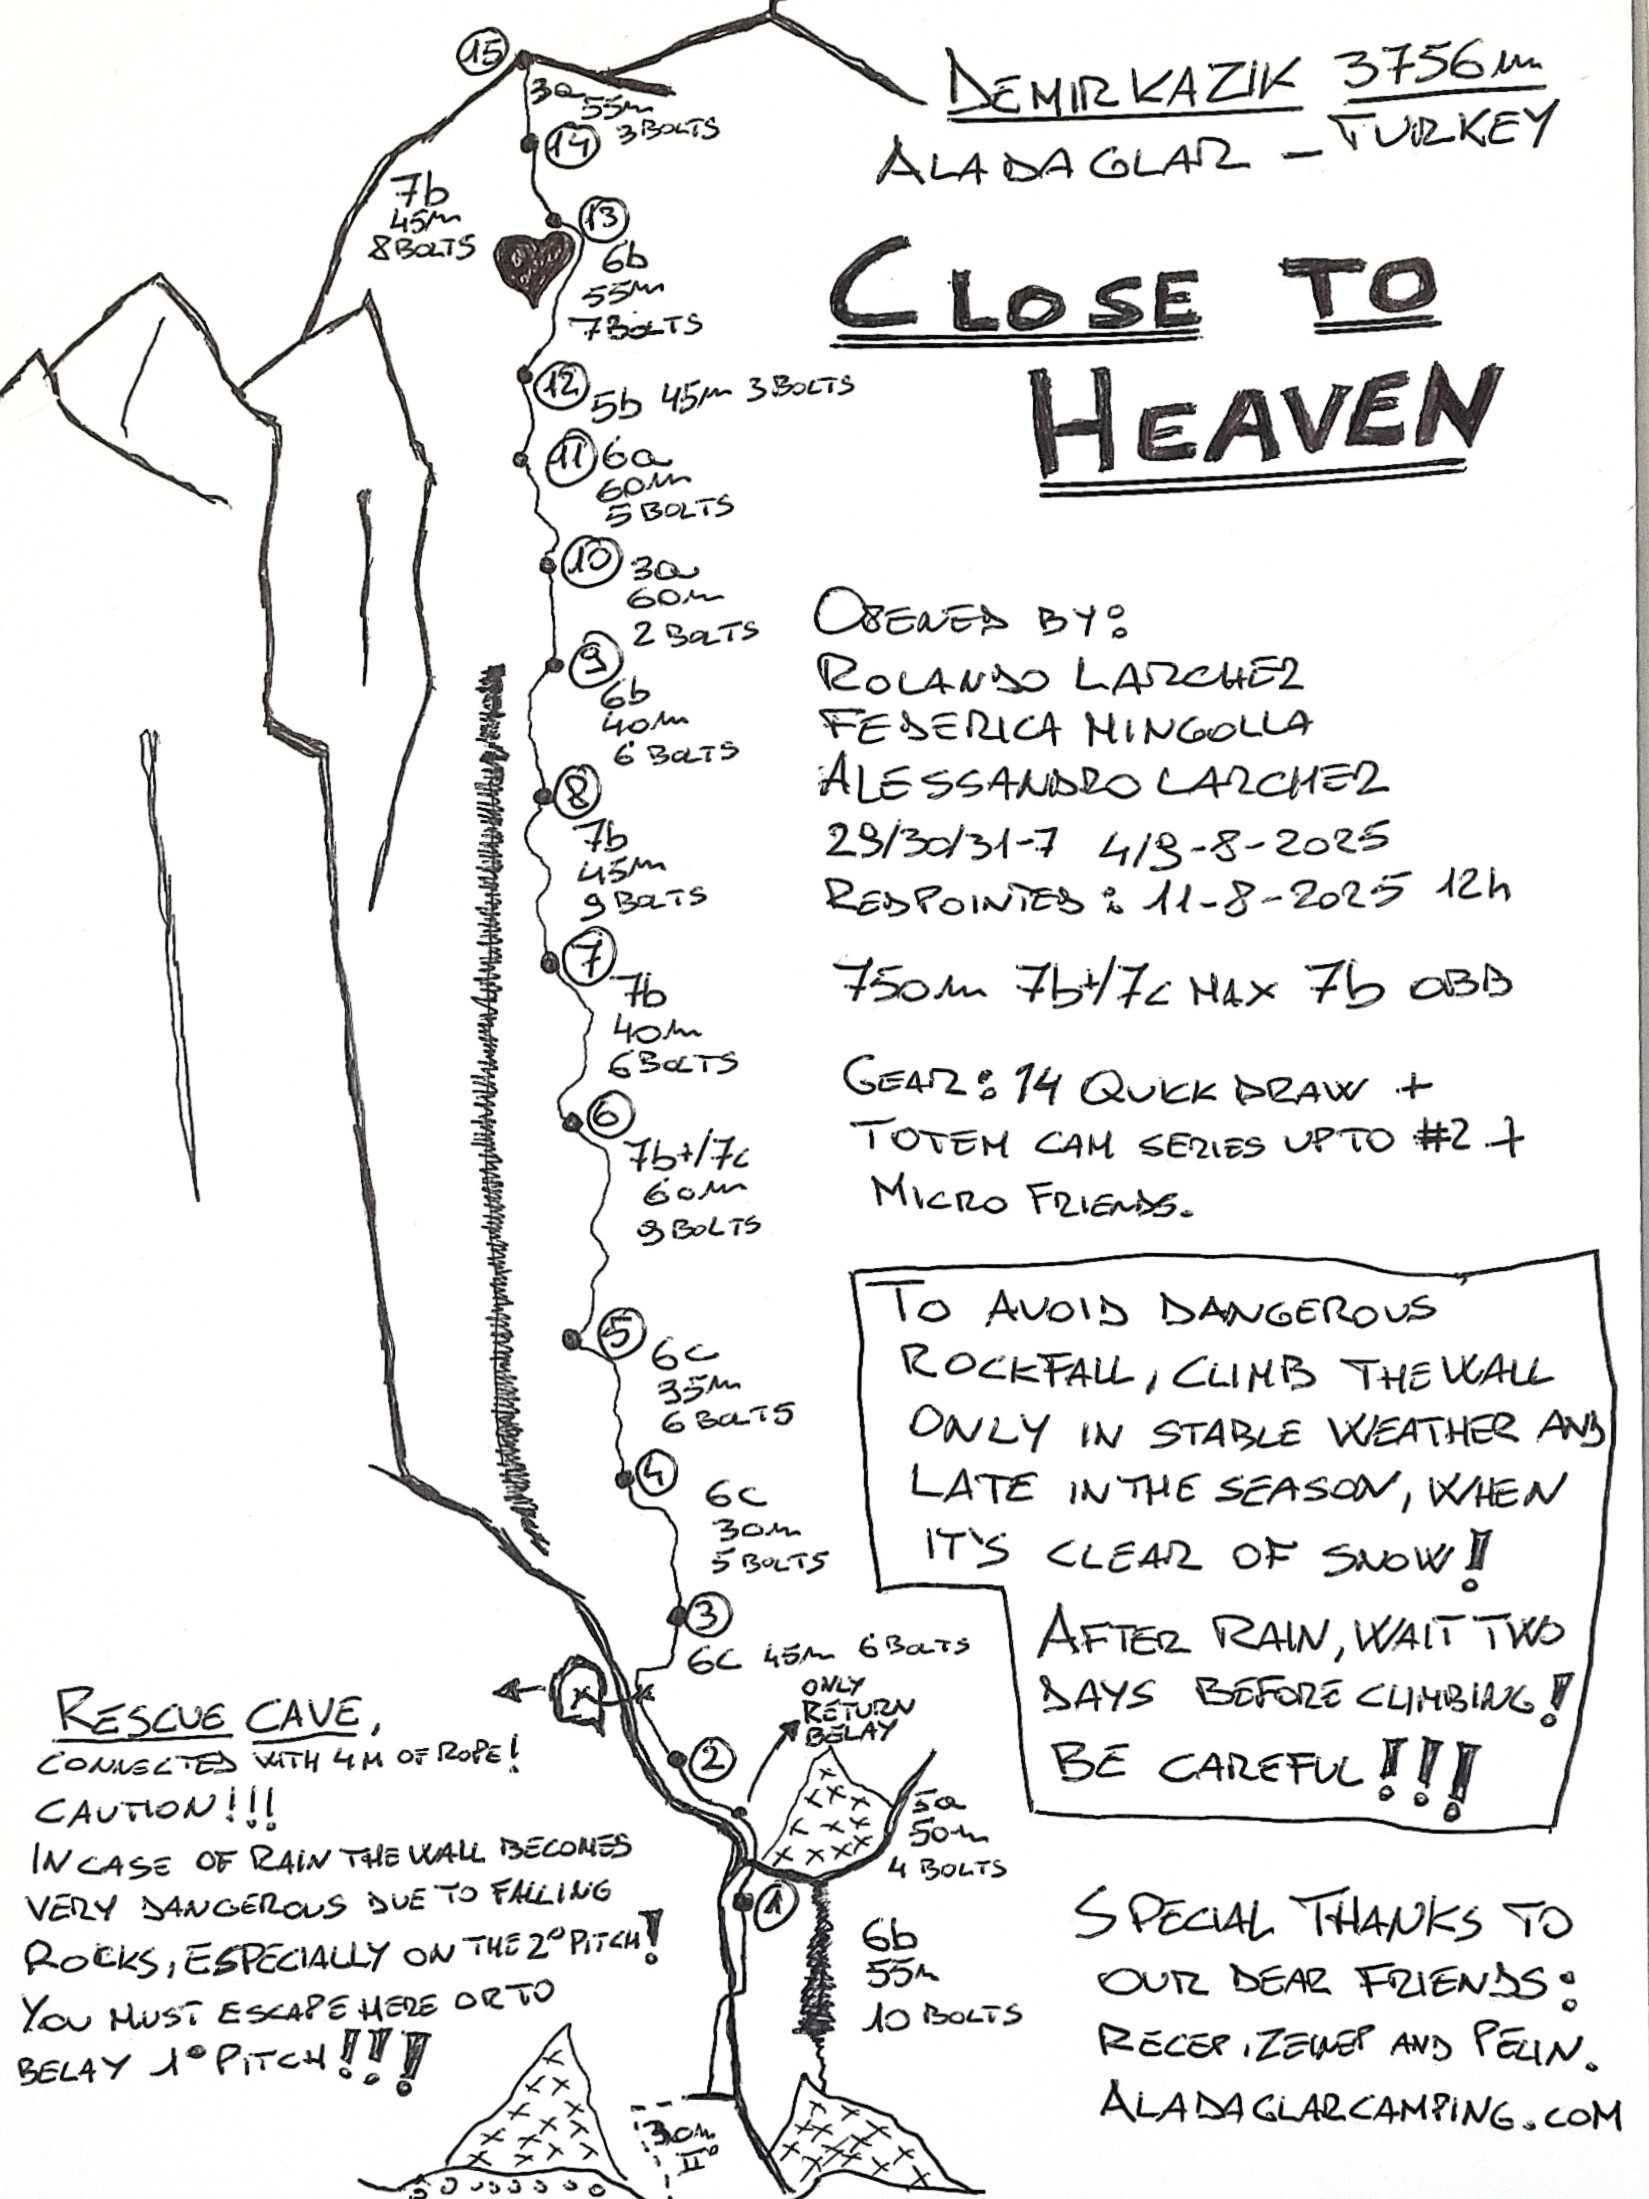 15
3a
55m
3 BOLTS
14
7b
45m
8 BOLTS
13
6b
55m
7 BOLTS
12
5b 45m 3 BOLTS
11
6a
60m
5 BOLTS
10
3a
60m
2 BOLTS
9
6b
40m
6 BOLTS
8
7b
45m
9 BOLTS
7
7b
40m
6 BOLTS
6
7b+/7c
60m
9 BOLTS
5
6C
35m
6 BOLTS
4
6C
30m
5 BOLTS
3
6C 45m 6 BOLTS
ONLY
RETURN
BELAY
2
5a
50m
4 BOLTS
1
6b
55m
10 BOLTS
30m
II°
DEMIRKAZIK 3756m
ALADAGLAR - TURKEY
CLOSE TO
HEAVEN
OPENED BY:
ROLANDO LARCHER
FEDERICA MINGOLLA
ALESSANDRO LARCHER
29/30/31-7 4/9-8-2025
REDPOINTED: 11-8-2025 12h
750m 7b+/7c MAX 7b OBB
GEAR: 14 QUICK DRAW +
TOTEM CAM SERIES UP TO #2 +
MICRO FRIENDS.
TO AVOID DANGEROUS
ROCKFALL, CLIMB THE WALL
ONLY IN STABLE WEATHER AND
LATE IN THE SEASON, WHEN
IT'S CLEAR OF SNOW!
AFTER RAIN, WAIT TWO
DAYS BEFORE CLIMBING!
BE CAREFUL!!!
RESCUE CAVE,
CONNECTED WITH 4M OF ROPE!
CAUTION!!!
IN CASE OF RAIN THE WALL BECOMES
VERY DANGEROUS DUE TO FALLING
ROCKS, ESPECIALLY ON THE 2° PITCH!
YOU MUST ESCAPE HERE OR TO
BELAY 1° PITCH!!!
SPECIAL THANKS TO
OUR DEAR FRIENDS:
RECEP, ZEINEP AND PELIN.
ALADAGLARCAMPING.COM